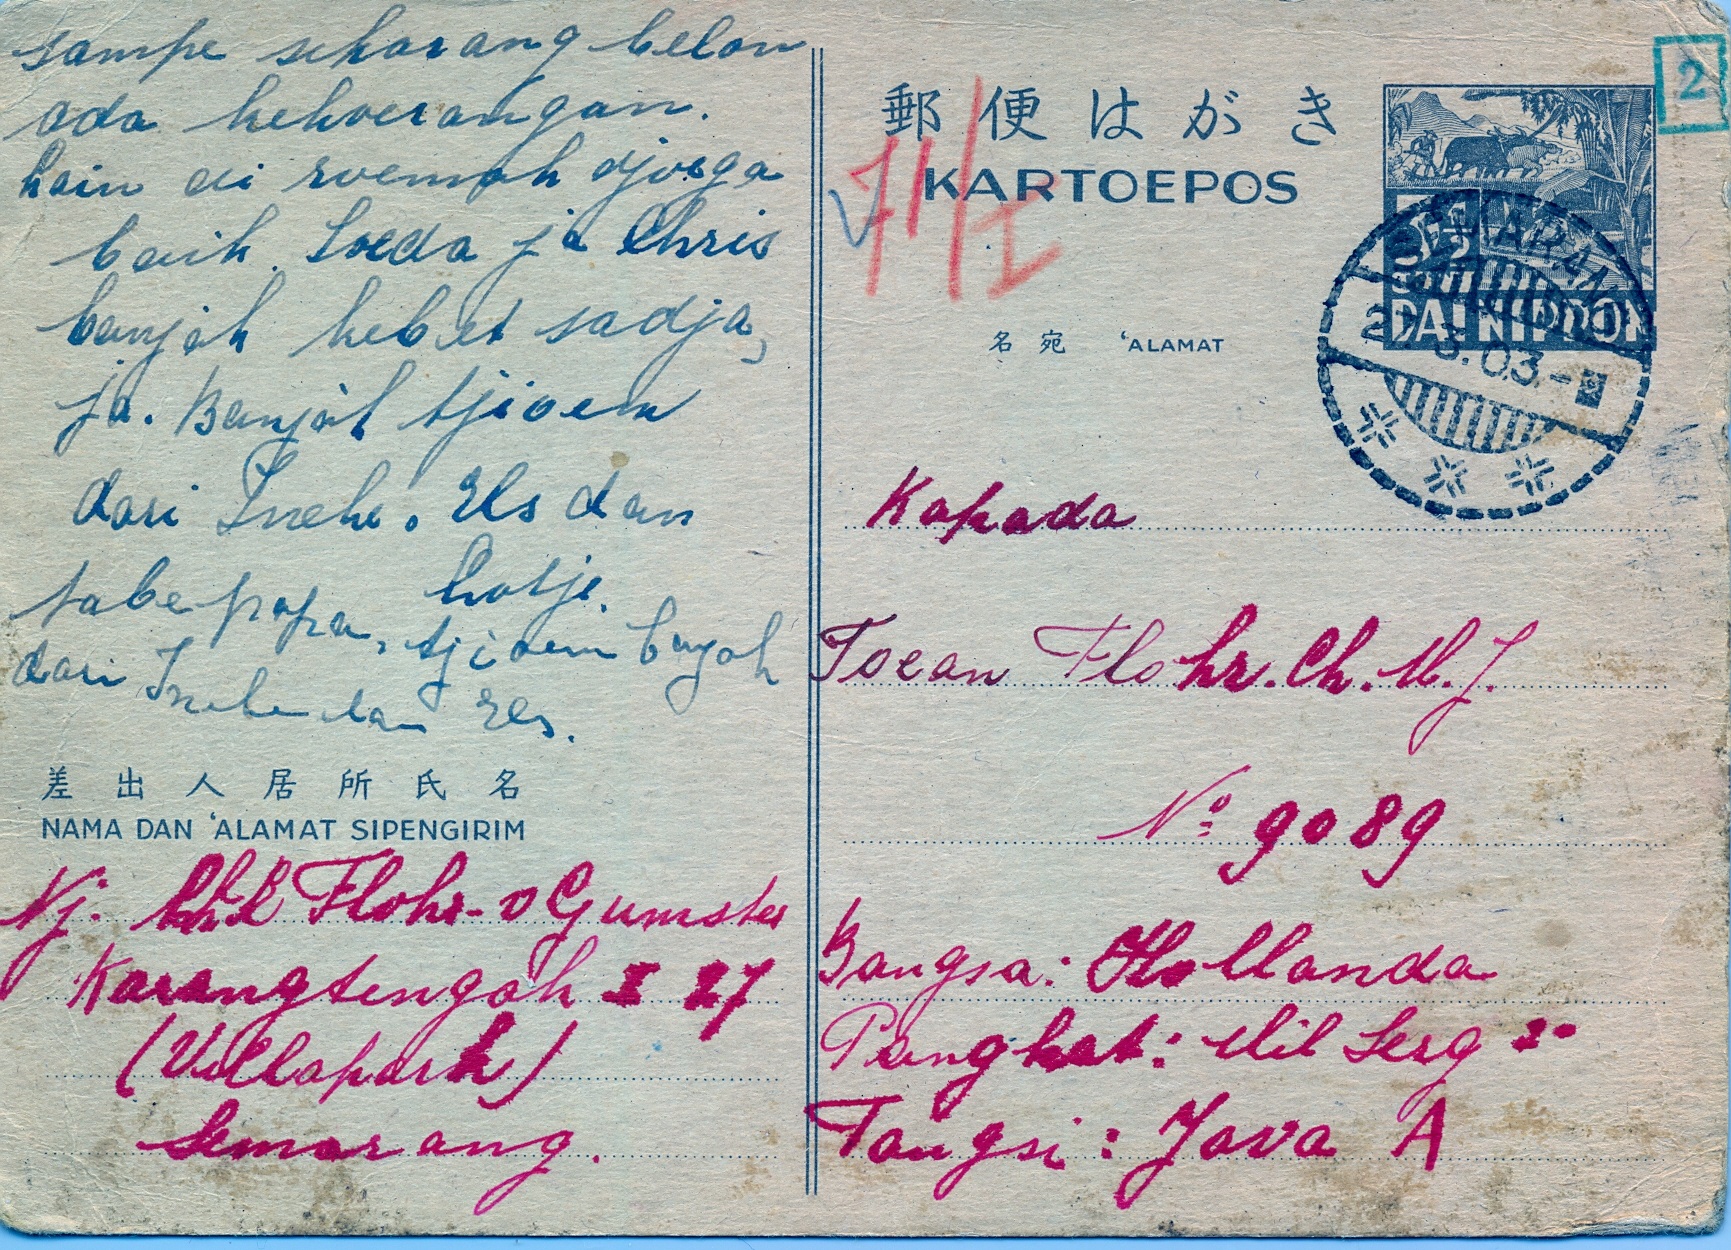 sampe sekarang belon
ada kekoerangan.
lain di roemah djoega
baik. Soeda ja Chris
banjak hebat sadja,
ja. Banjak tjioem
dari Ineke. Els dan
Lotje.
tabe papa, tjioem banjak
dari Ineke dan Els.
差出人居所氏名
NAMA DAN 'ALAMAT SIPENGIRIM
Nj. Flohr - v Gumster
Karangtengah I 27
(Villapark)
Semarang.
2
郵便はがき
KARTOEPOS
71/I
3½
CENT
DAI NIPPON
SEMARANG
3.03.-
名宛 'ALAMAT
Kapada
Toean Flohr. Ch. M. J.
No 9089
Bangsa: Hollanda
Pangkat: Mil Serg
Tangsi: Java A